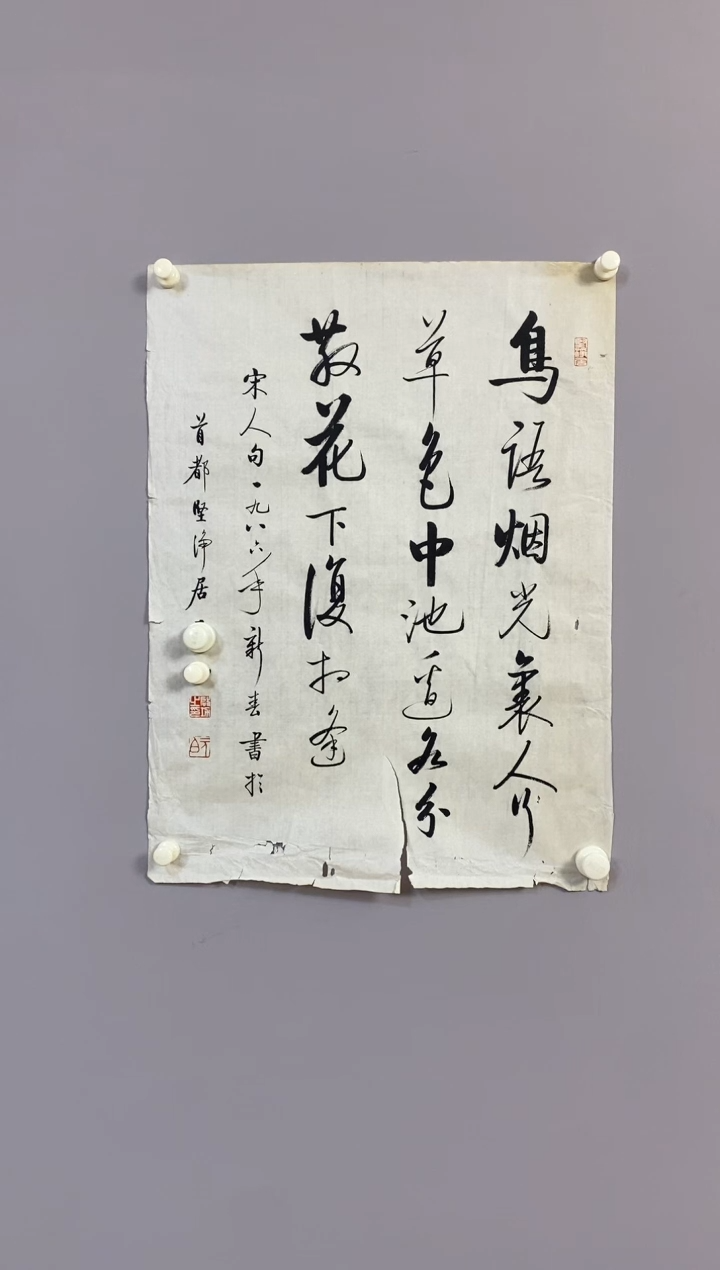 鳥語烟光裏人行
草色中池邊各分
散花下復相逢
宋人句一九八六年新春書於
首都坚淨居